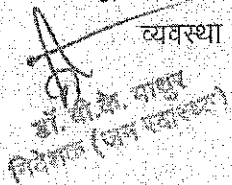 व्यवस्था
डॉ. वी.के. माथुर
निदेशक (जन स्वास्थ्य)